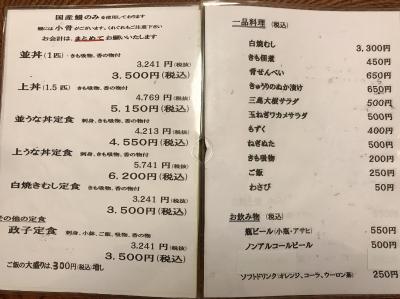 国産鰻のみを使用しております
鰻には小骨がございます。くれぐれもご注意下さい
お会計は、まとめてお願いいたします
並丼(1匹) きも吸物、香の物付
3,241円(税抜)
3,500円(税込)
上丼(1.5匹) きも吸物、香の物付
4,769円(税抜)
5,150円(税込)
並うな丼定食 刺身、きも吸物、香の物付
4,213円(税抜)
4,550円(税込)
上うな丼定食 刺身、きも吸物、香の物付
5,741円(税抜)
6,200円(税込)
白焼きむし定食 きも吸物、香の物付
3,241円(税抜)
3,500円(税込)
その他の定食
政子定食 刺身、小鉢、ご飯、吸物、香の物
3,241円(税抜)
3,500円(税込)
ご飯の大盛りは、300円(税込)増し
一品料理(税込)
白焼むし 3,300円
きも佃煮 450円
骨せんべい 650円
きゅうりのぬか漬け 650円
三島大根サラダ 500円
玉ねぎワカメサラダ 500円
もずく 400円
ねぎぬた 500円
きも吸物 200円
ご飯 250円
わさび 50円
お飲み物(税込)
瓶ビール(小瓶・アサヒ) 550円
ノンアルコールビール 500円
ソフトドリンク(オレンジ、コーラ、ウーロン茶) 250円